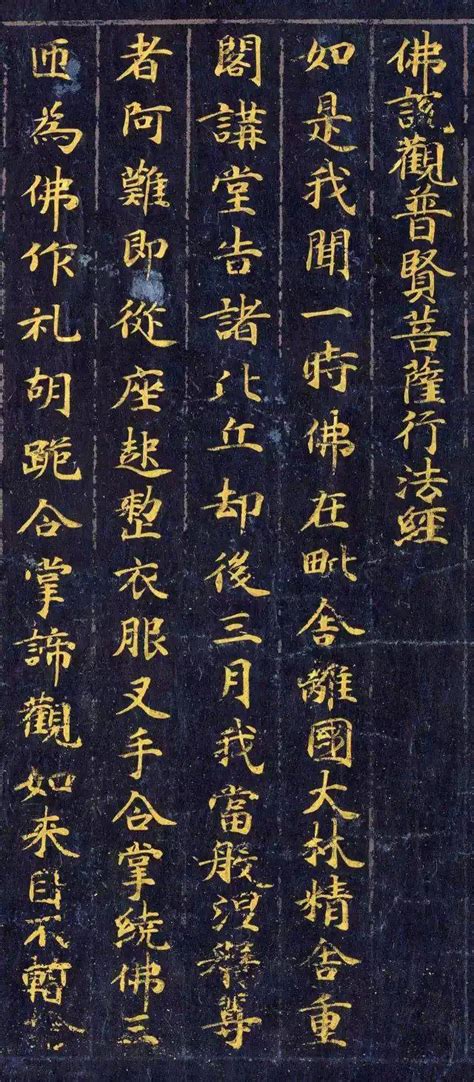 佛說觀普賢菩薩行法經
如是我聞一時佛在毗舍離國大林精舍重
閣講堂告諸比丘却後三月我當般涅槃尊
者阿難即從座起整衣服叉手合掌繞佛三
匝為佛作礼胡跪合掌諦觀如来目不暫